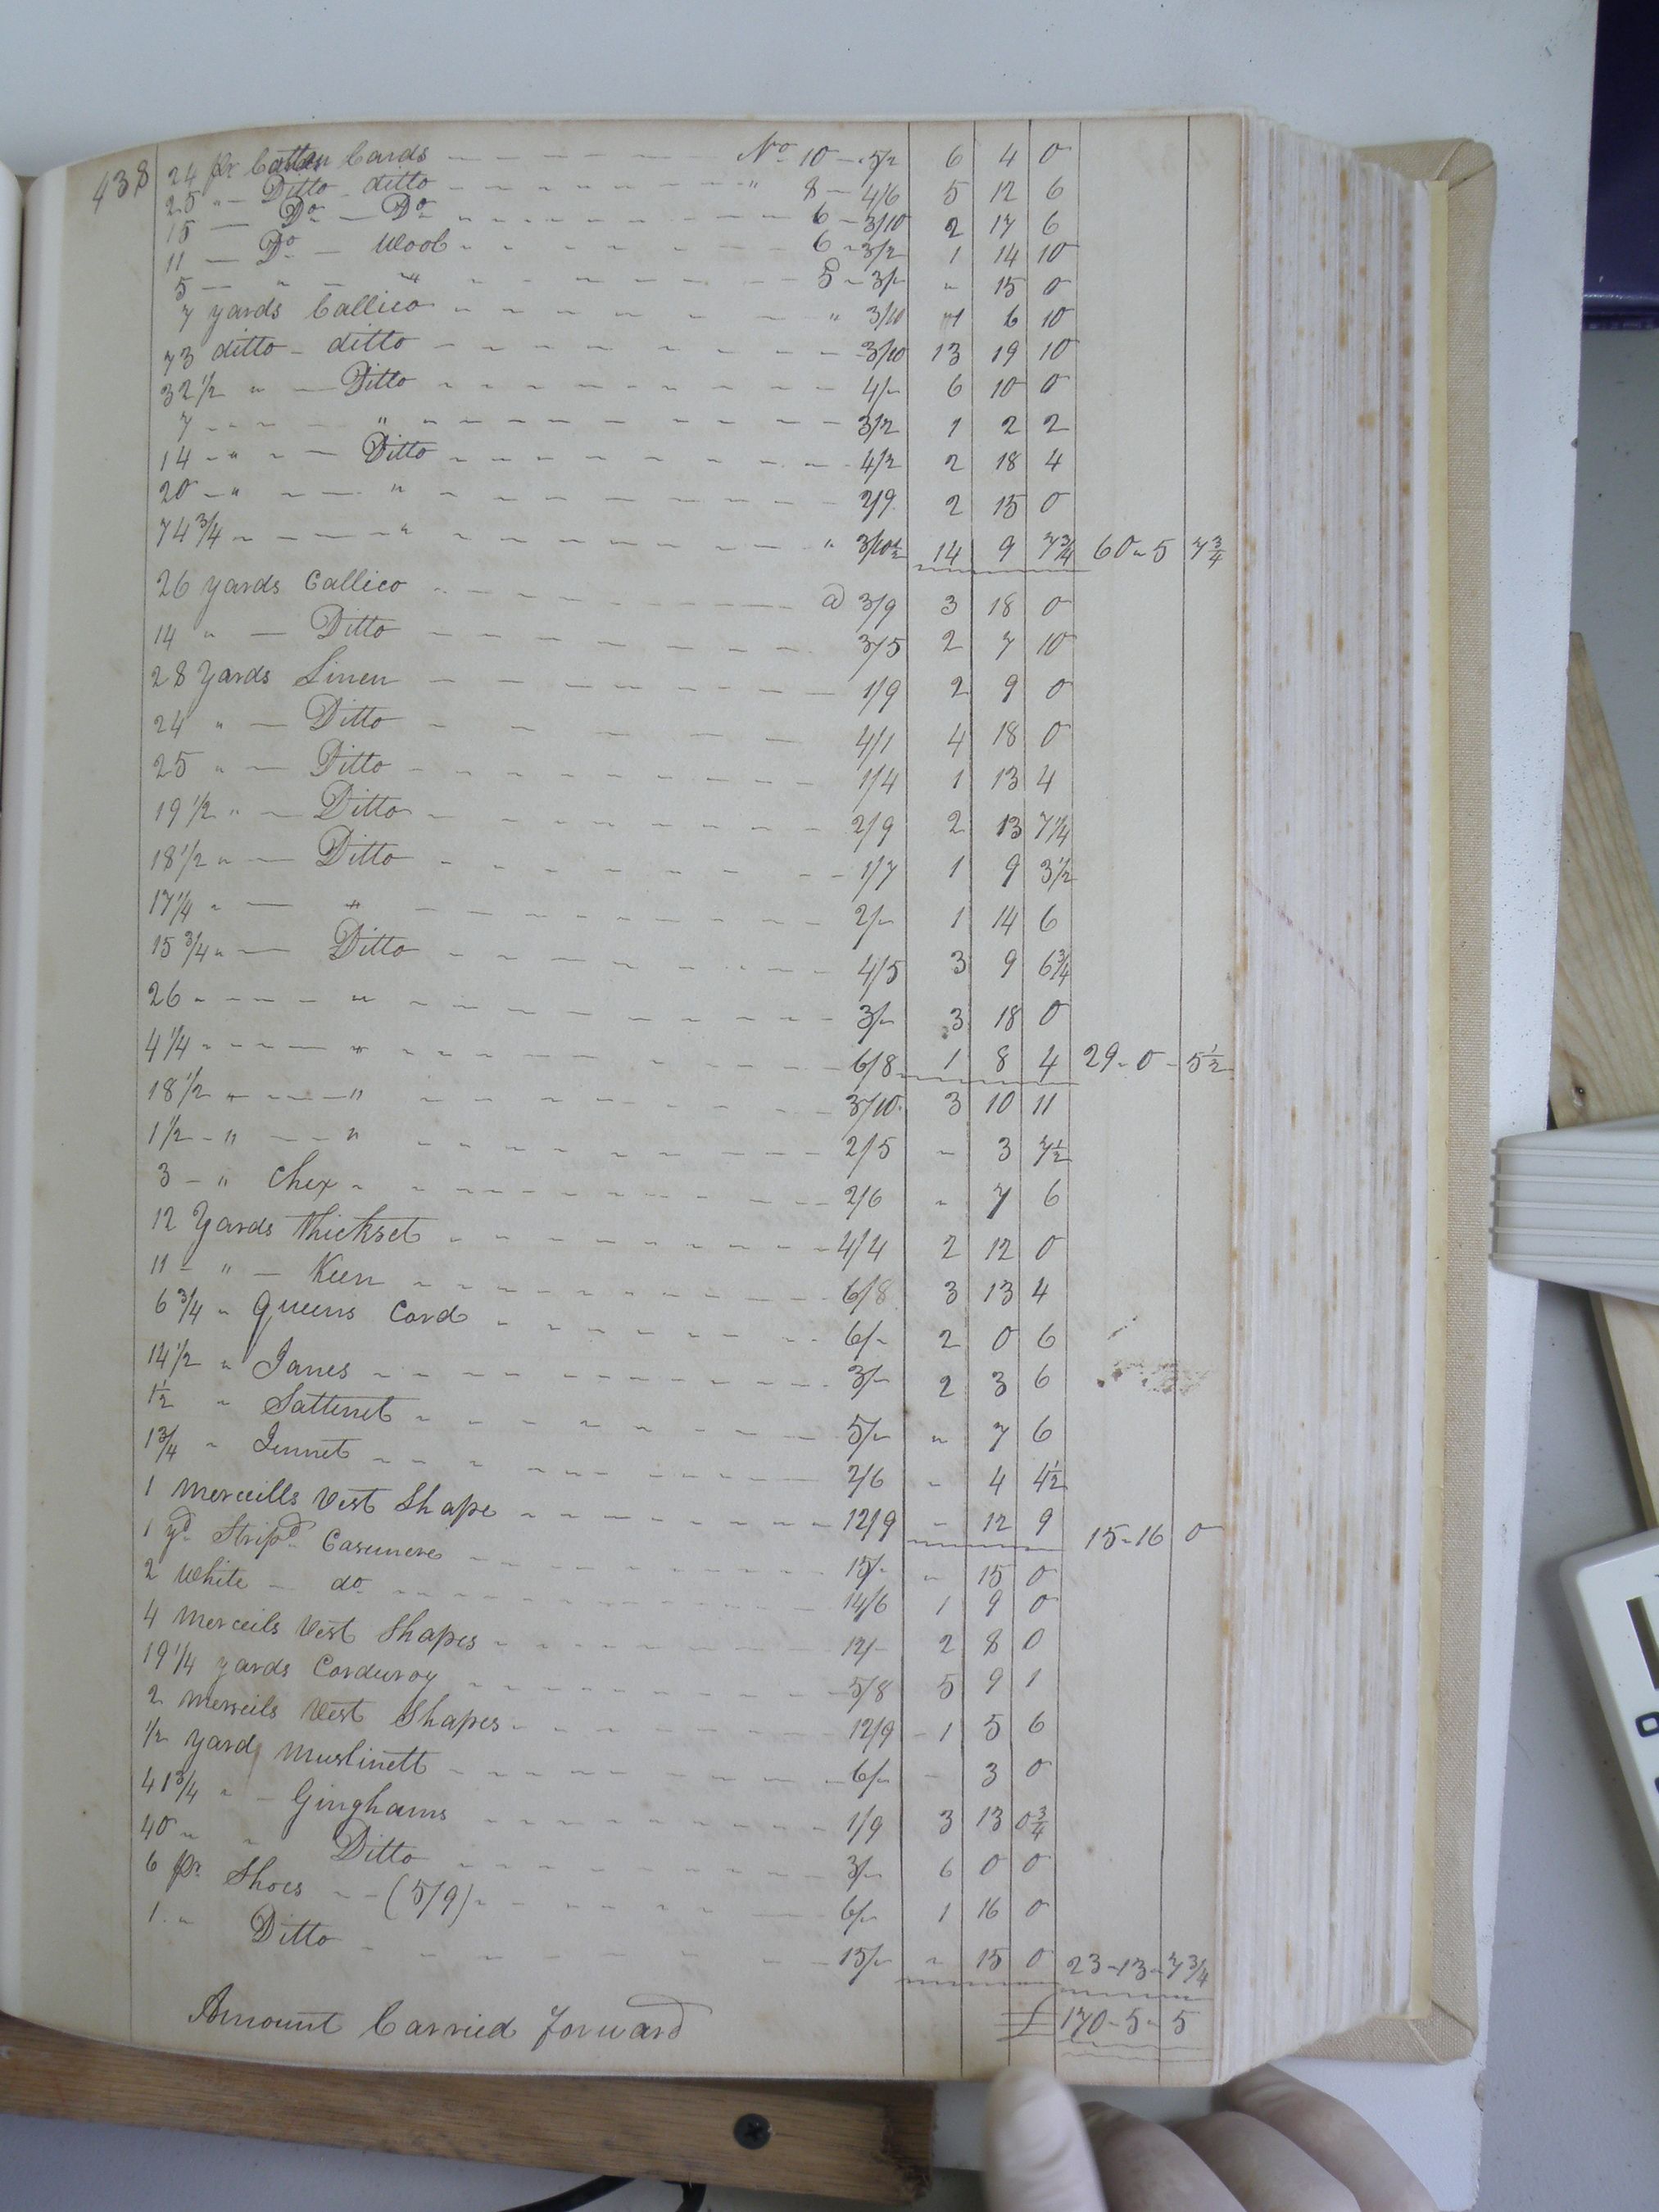 438
24 pr Cotton Cards No. 10 - 5/2 6 4 0
25 " - Ditto - ditto " 8 - 4/6 5 12 6
15 - Do - Do 6 - 3/10 2 17 6
11 - Do - Wool 6 - 3/2 1 14 10
5 - " - " 5 - 3/- " 15 0
7 yards Callico " 3/10 1 6 10
73 ditto - ditto 3/10 13 19 10
32 1/2 " - Ditto 4/- 6 10 0
7 " 3/2 1 2 2
14 - " - Ditto 4/2 2 18 4
20 - " - " 2/9 2 15 0
74 3/4 - " " 3/10 1/2 14 9 7 3/4 60 - 5 7 3/4
26 yards Callico @ 3/9 3 18 0
14 " - Ditto 3/5 2 7 10
28 Yards Linen 1/9 2 9 0
24 " - Ditto 4/1 4 18 0
25 " - Ditto 1/4 1 13 4
19 1/2 " - Ditto 2/9 2 13 7 1/4
18 1/2 " - Ditto 1/7 1 9 3 1/2
17 1/4 " - " 2/- 1 14 6
15 3/4 " - Ditto 4/5 3 9 6 3/4
26 - " 3/- 3 18 0
4 1/4 - " 6/8 1 8 4 29 - 0 - 5 1/2
18 1/2 " - " 3/10 3 10 11
1 1/2 - " - " 2/5 - 3 7 1/2
3 - " Chex 2/6 - 7 6
12 Yards thickset 4/4 2 12 0
11 - " - Keen 6/8 3 13 4
6 3/4 " Queens Cord 6/- 2 0 6
14 1/2 " Janes 3/- 2 3 6
1 1/2 " Sattenet 5/- " 7 6
1 3/4 " Jennet 2/6 - 4 4 1/2
1 Merceills Vest Shape 12/9 - 12 9 15 - 16 0
1 yd Stripd Casimere 15/- " 15 0
2 White - do 14/6 1 9 0
4 Merceils Vest Shapes 12/- 2 8 0
19 1/4 yards Corduroy 5/8 5 9 1
2 Merceils Vest Shapes 12/9 - 1 5 6
1/2 Yard Muslinett 6/- - 3 0
41 3/4 " - Ginghams 1/9 3 13 0 3/4
40 " " Ditto 3/- 6 0 0
6 pr Shoes - (5/9) 6/- 1 16 0
1 " Ditto 15/- " 15 0 23 - 13 - 7 3/4
Amount Carried forward £ 170 - 5 - 5